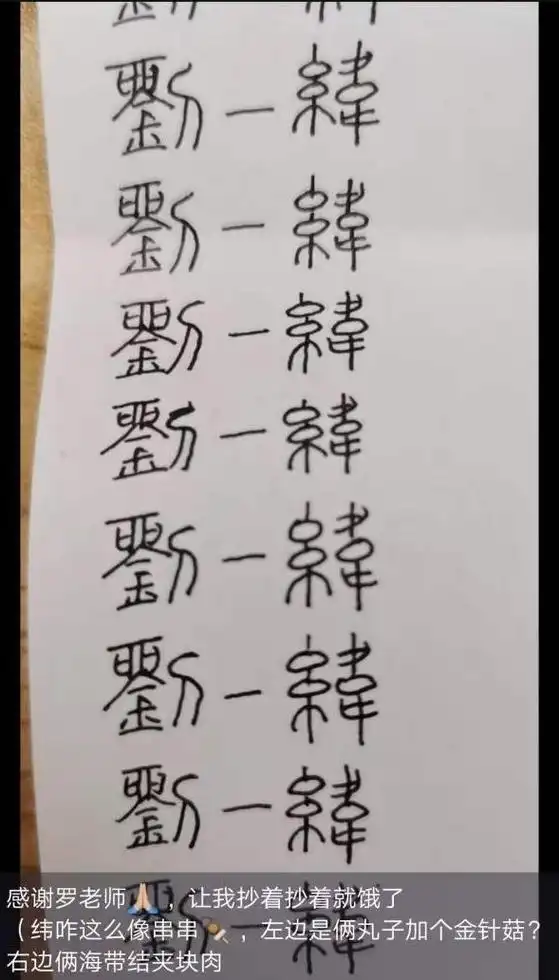 劉一緯
劉一緯
劉一緯
劉一緯
劉一緯
劉一緯
劉一緯
劉一緯
感谢罗老师🙏🏻，让我抄着抄着就饿了
（纬咋这么像串串🍢，左边是俩丸子加个金针菇？
右边俩海带结夹块肉